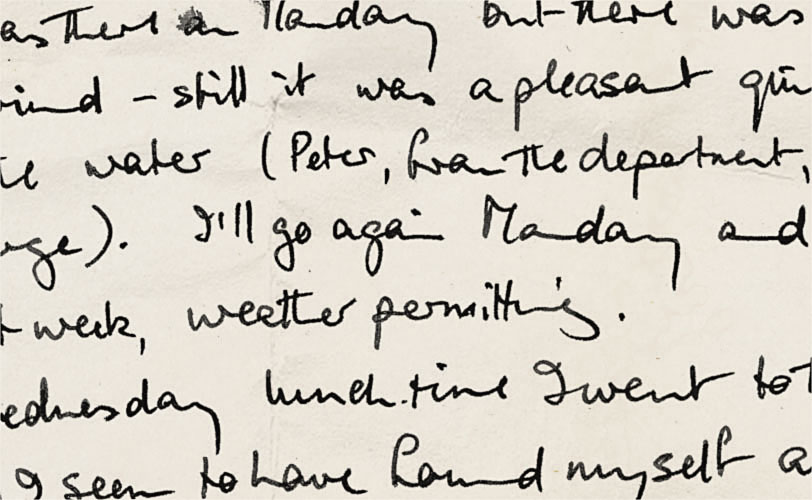 as there on Monday but there was
wind - still it was a pleasant
water (Peter, from the department,
). I'll go again Monday and
week, weather permitting.
ednesday lunch-time I went to
I seem to have found myself a